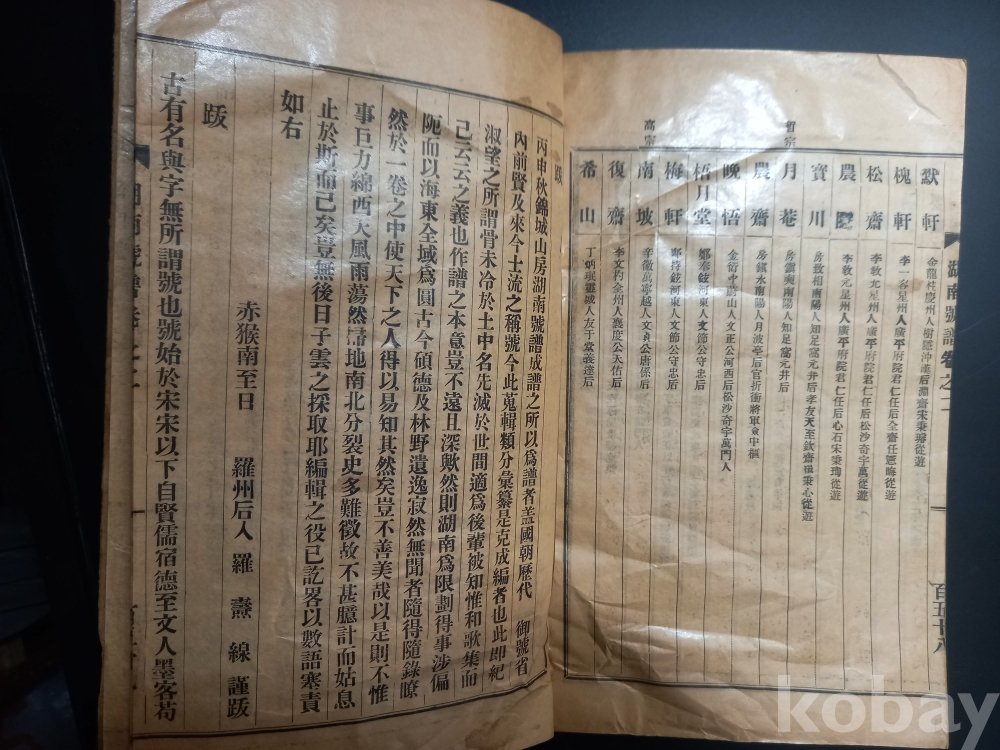 湖南號譜卷之二
百五十八
默軒 金龍柱慶州人樹隱沖漢后淵齋宋秉璿從遊
槐軒 李一容星州人廣平府院君仁任后全齋任憲晦從遊
松齋 李敎尤星州人廣平府院君仁任后松沙奇宇萬從遊
農 李敎元星州人廣平府院君仁任后心石宋秉珣從遊
寶川 房致相南陽人知足窩元井后孝友天至欽齋崔秉心從遊
哲宗
月菴 房鎭奭南陽人知足窩元井后
農齋 房鎭水南陽人月波亭后官折衝將軍僉中樞
晚悟 金衍 山人文正公河西后松沙奇宇萬門人
梧月堂 鄭奉鉉河東人文節公守忠后
梅軒 鄭持鉉河東人文節公守忠后
高宗
南坡 辛徽萬寧越人文貞公唐係后
復齋 李文杓全州人襄度公天佑后
希山 丁炳珉靈城人友于堂義達后
跋
丙申秋錦城山房湖南號譜成譜之所以爲譜者盖國朝歷代 御號省
內前賢及來今士流之稱號今此蒐輯類分彙纂是克成編者也此卽紀
淑望之所謂骨未冷於土中名先滅於世間適爲後輩被知惟和歌集而
己云云之義也作譜之本意豈不遠且深歟然則湖南爲限劃得事涉偏
阨而以海東全域爲圓古今碩德及林野遺逸寂然無聞者隨得隨錄瞭
然於一卷之中使天下之人得以易知其然矣豈不善美哉以是則不惟
事巨力綿酉天風雨蕩然掃地南北分裂史多難徵故不甚臆計而姑息
止於斯而己矣豈無後日子雲之採取耶編輯之役已訖畧以數語塞責
如右
赤猴南至日 羅州后人 羅燾線 謹跋
跋
古有名與字無所謂號也號始於宋宋以下自賢儒宿德至文人墨客苟
kobay